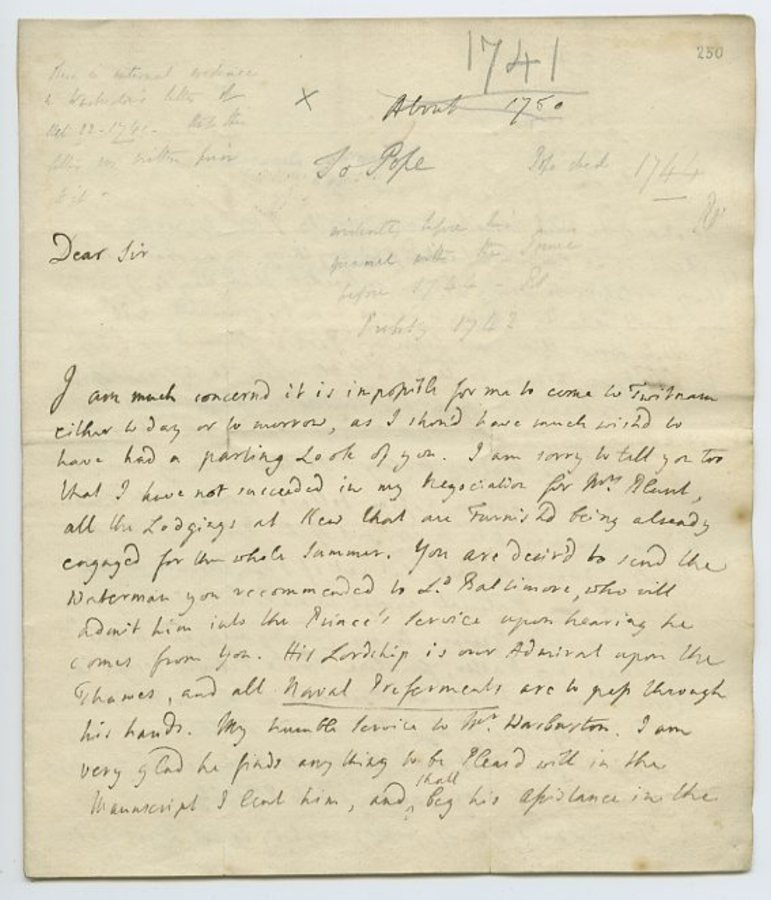 250
1741
About 1750
There is internal evidence
in Warburton's letter of
X
To Pope
Pope died 1744
before his
with the Prince
before 1744 -
1742
Dear Sir
I am much concernd it is impossible for me to come to Twitnam
either to day or to morrow, as I shoud have much wishd to
have had a parting Look of you. I am sorry to tell you too
that I have not succeeded in my Negociation for Mrs Blunt,
all the Lodgings at Kew that are Furnishd being already
engaged for the whole Summer. You are desird to send the
Waterman you recommended to Ld Baltimore, who will
admit him into the Prince's Service upon hearing he
comes from you. His Lordship is our Admiral upon the
Thames, and all Naval Preferments are to pass through
his hands. My humble Service to Mr Warburton. I am
very glad he finds any thing to be Pleasd with in the
shall
Manuscript I lent him, and beg his assistance in the